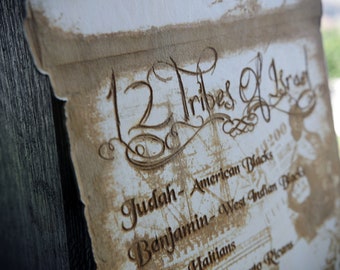 12 Tribes Of Israel
Judah- American Blacks
Benjamin- West Indian Blacks
Haitians
Ricans